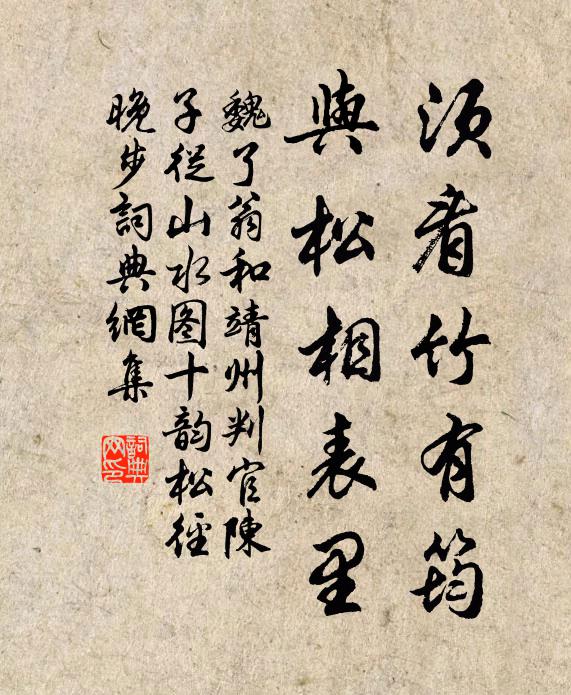 須看竹有筠
與松相表里
魏了翁和靖州判官陳
子從山水图十韵松徑
晚步詞典網集
詞典網印